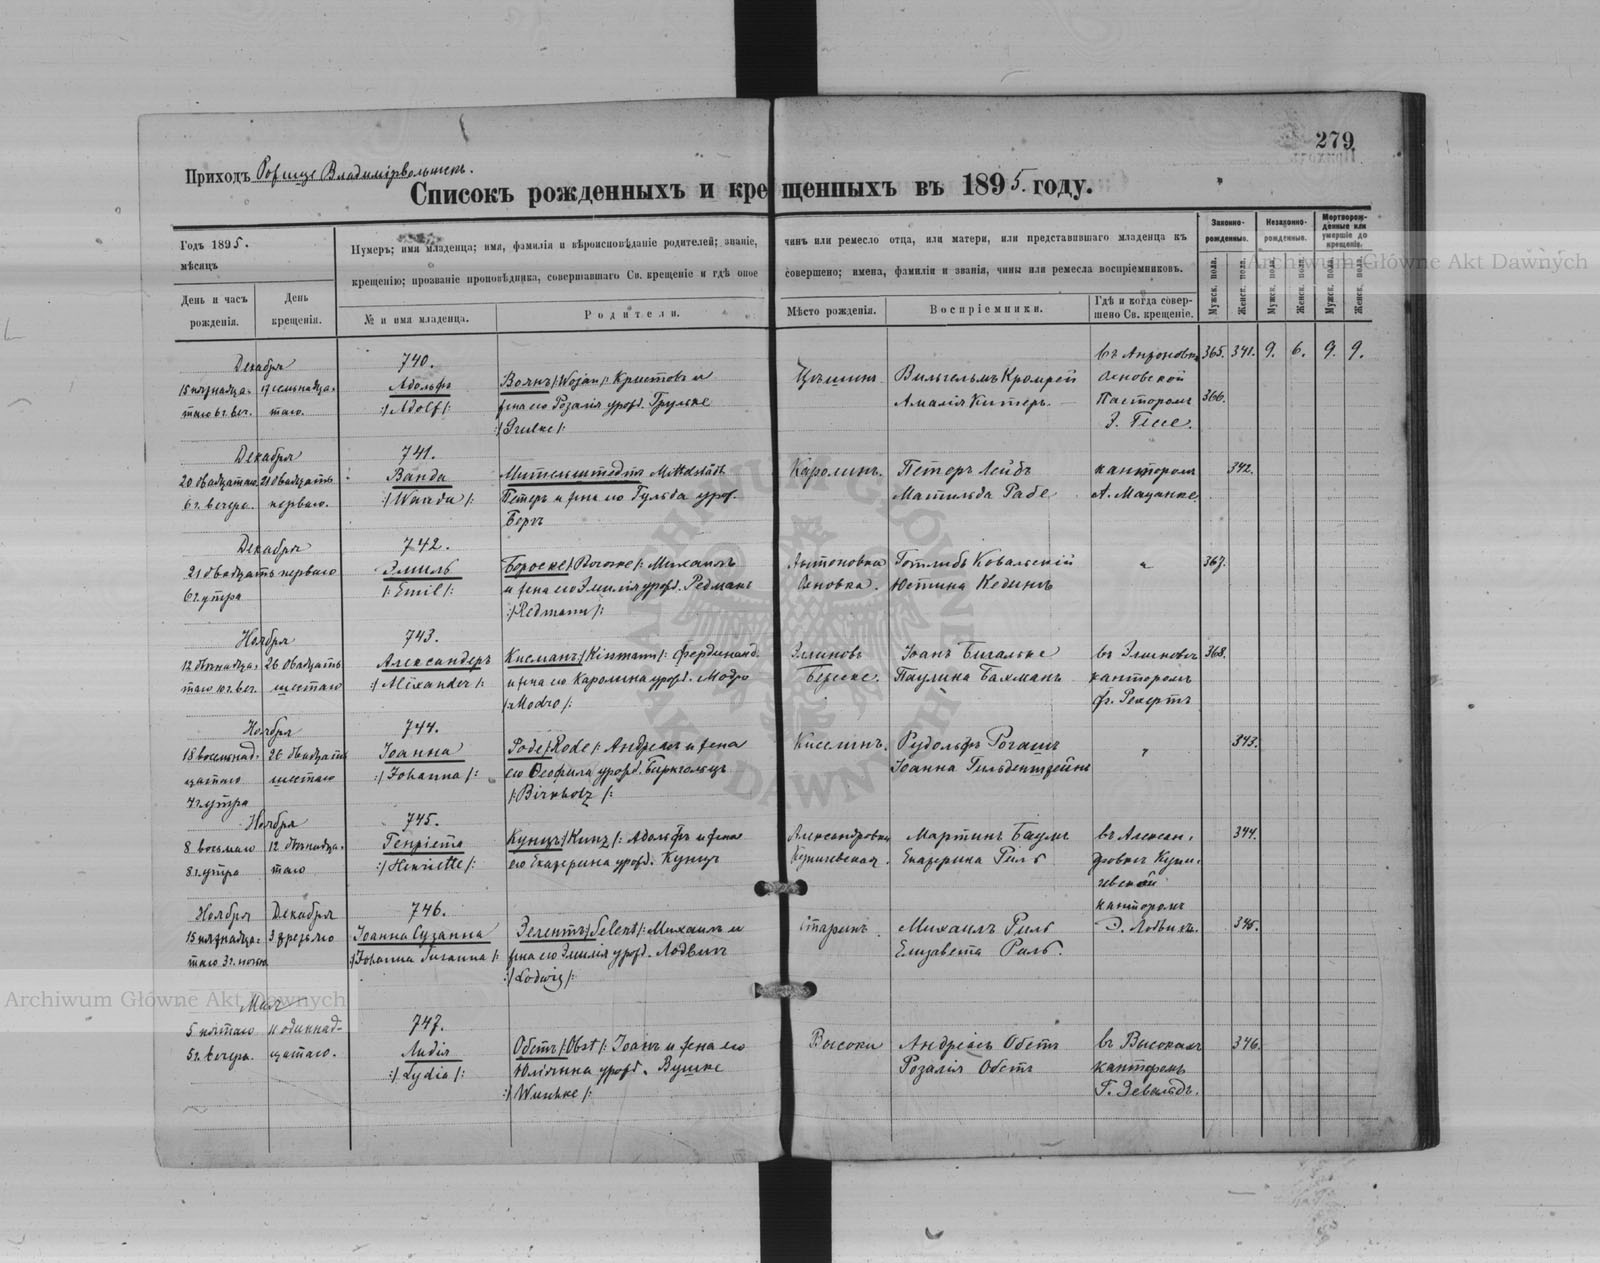 279
Приходъ Рожище Владимірволынск.
Списокъ рожденныхъ и крещенныхъ въ 1895. году.
Годъ 1895.
мѣсяцъ
Нумеръ; имя младенца; имя, фамилія и вѣроисповѣданіе родителей; званіе, чинъ или ремесло отца, или матери, или представившаго младенца къ
крещенію; прозваніе проповѣдника, совершавшаго Св. крещеніе и гдѣ оное совершено; имена, фамиліи и званія, чины или ремесла воспріемниковъ.
Законно-
рожденные.
Незаконно-
рожденные.
Мертворож-
денные или
умершіе до
крещенія.
День и часъ
рожденія.
День
крещенія.
№ и имя младенца.
Родители.
Мѣсто рожденія.
Воспріемники.
Гдѣ и когда совер-
шено Св. крещеніе.
Мужск. пола.
Женск. пола.
Мужск. пола.
Женск. пола.
Мужск. пола.
Женск. пола.
365. 341. 9. 6. 9. 9.
Декабря
740.
15 пятнадца- 17 семьнадца- Адольфъ Воянъ /Wojan/: Кристовъ и Вильгельмъ Кромрей
таго 6 ч. веч. таго. :/Adolf/: жена его Розалія урожд. Грульке Амалія Китеръ. Пасторомъ 366.
:/Grulke/: Э. Гессе.
Декабря
741.
20 двадцатаго 21 двадцать Ванда Мительштедтъ Mittelstädt Каролинъ. Петеръ Лейбъ канторомъ 342.
6 ч. вечера. перваго. :/Wanda/: Петеръ и жена его Гульда урож. Матильда Рабе А. Маданке
Бергъ
Декабря
742.
21 двадцать перваго Эмиль Михаилъ Антоновка Готлибъ Ковальскій " 367.
6 ч. утра /:Emil/: и жена его Эмилія урожд. Редманъ Юстина
:/Redmann/:
Ноября
743.
12 двѣнадца- 26 двадцать Александеръ Кисманъ /Kissmann/: Фердинанд. Іоанъ въ 368.
таго 10 ч. веч. шестаго :/Alexander/: и жена его Каролина урожд. Модро Паулина Бахманъ канторомъ
/:Modro/:
Ноября
744.
18 восемьнад- 26 двадцать Іоанна Роде /Rode/: Андреасъ и жена Киселинъ. Рудольфъ Рогашъ " 343.
цатаго шестаго :/Johanna/: его Теофила урожд. Биркгольцъ Іоанна Гильденштейнъ
7 ч. утра /:Birkholz/:
Ноября
745.
8 восьмаго 12 двѣнадца- Генріета Кунцъ /Kunz/: Адольфъ и жена Александровка Мартинъ Баумъ въ Алексан- 344.
8 ч. утра таго :/Henriette/: его Екатерина урожд. Кунцъ Купичевская. Екатерина Гилъ дровкѣ Купи-
чевской
канторомъ
Ноября Декабря
746.
15 пятнадца- 3 третьяго Іоанна Сузанна Зелентъ /Selent/: Михаилъ и Михаилъ Риль Э. Лодвигъ. 345.
таго 3 ч. ночи :/Johanna Susanna/: жена его Эмилія урожд. Лодвигъ Елизавета Риль.
:/Lodwig/:
Мая
747.
5 пятаго 11 одиннад- Лидія Обстъ /:Obst/: Іоанъ и жена его Высоки Андреасъ Обстъ въ Высокахъ 346.
5 ч. вечера. цатаго. :/Lydia/: Юліянна урожд. Вушке Розалія Обстъ канторомъ
Г. Зевальдъ.
Archiwum Główne Akt Dawnych
Archiwum Główne Akt Dawnych
ARCHIWUM GŁÓWNE AKT DAWNYCH